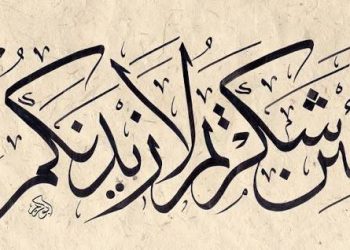 ئن شكرتم لأزيدنكم